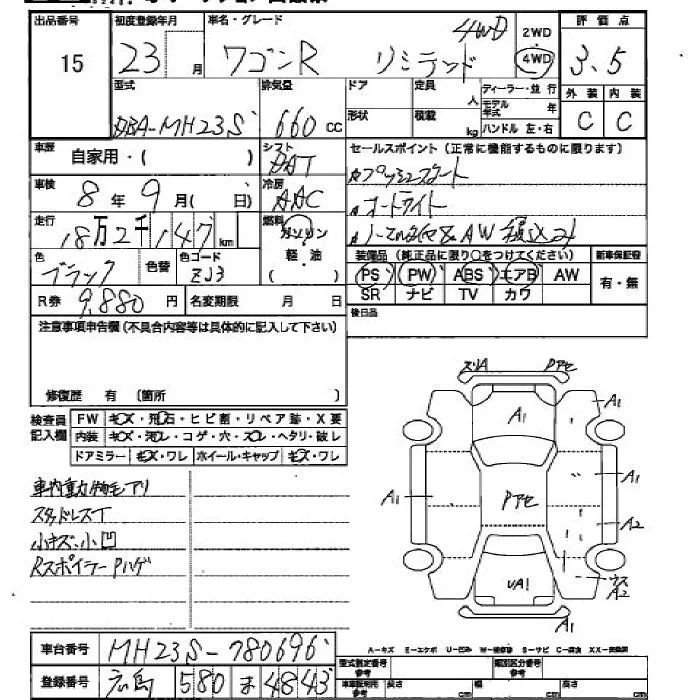 出品番号 初度登録年月 車名・グレード 2WD 評価点
15 23 月 ワゴンR リミテッド 4WD 4WD 3.5
型式 排気量 ドア 定員 人 ディーラー・並行 外装 内装
DBA-MH23S 660 cc 形状 積載 kg モデル年式 年 C C
ハンドル 左・右
車歴 自家用・( ) シフト DAT セールスポイント(正常に機能するものに限ります)
プッシュスタート
車検 8年9月( 日) 冷房 AAC
オートライト
走行 18万2千147km 燃料 ガソリン
軽・油
( )
AW 積込み
色 ブラック 色替 色コード ZJ3
装備品(純正品に限り○をつけてください) 新車保証書
PS PW ABS エアB AW 有・無
SR ナビ TV カワ
R券 9,880円 名変期限 月 日
後日品
注意事項申告欄(不具合内容等は具体的に記入して下さい)
修復歴 有 [箇所 ]
検査員記入欄 FW キズ・飛石・ヒビ割・リペア跡・X要
内装 キズ・汚レ・コゲ・穴・スレ・ヘタリ・破レ
ドアミラー キズ・ワレ ホイール・キャップ キズ・ワレ
スリA Pアセ
A1 A1
A1 Pアセ A1
A2
UA1 A2
A1
車内動物毛アリ
スタッドレスT
小キズ、小凹
RスポイラーPハゲ
A-キズ E-エクボ U-凹み W-補修跡 S-サビ C-腐食 XX-交換済
車台番号 MH23S-780696
登録番号 広島 580 ま 4843
型式指定番号 参考 類別区分番号 参考
車庫証明用 参考 長さ cm 幅 cm 高さ cm